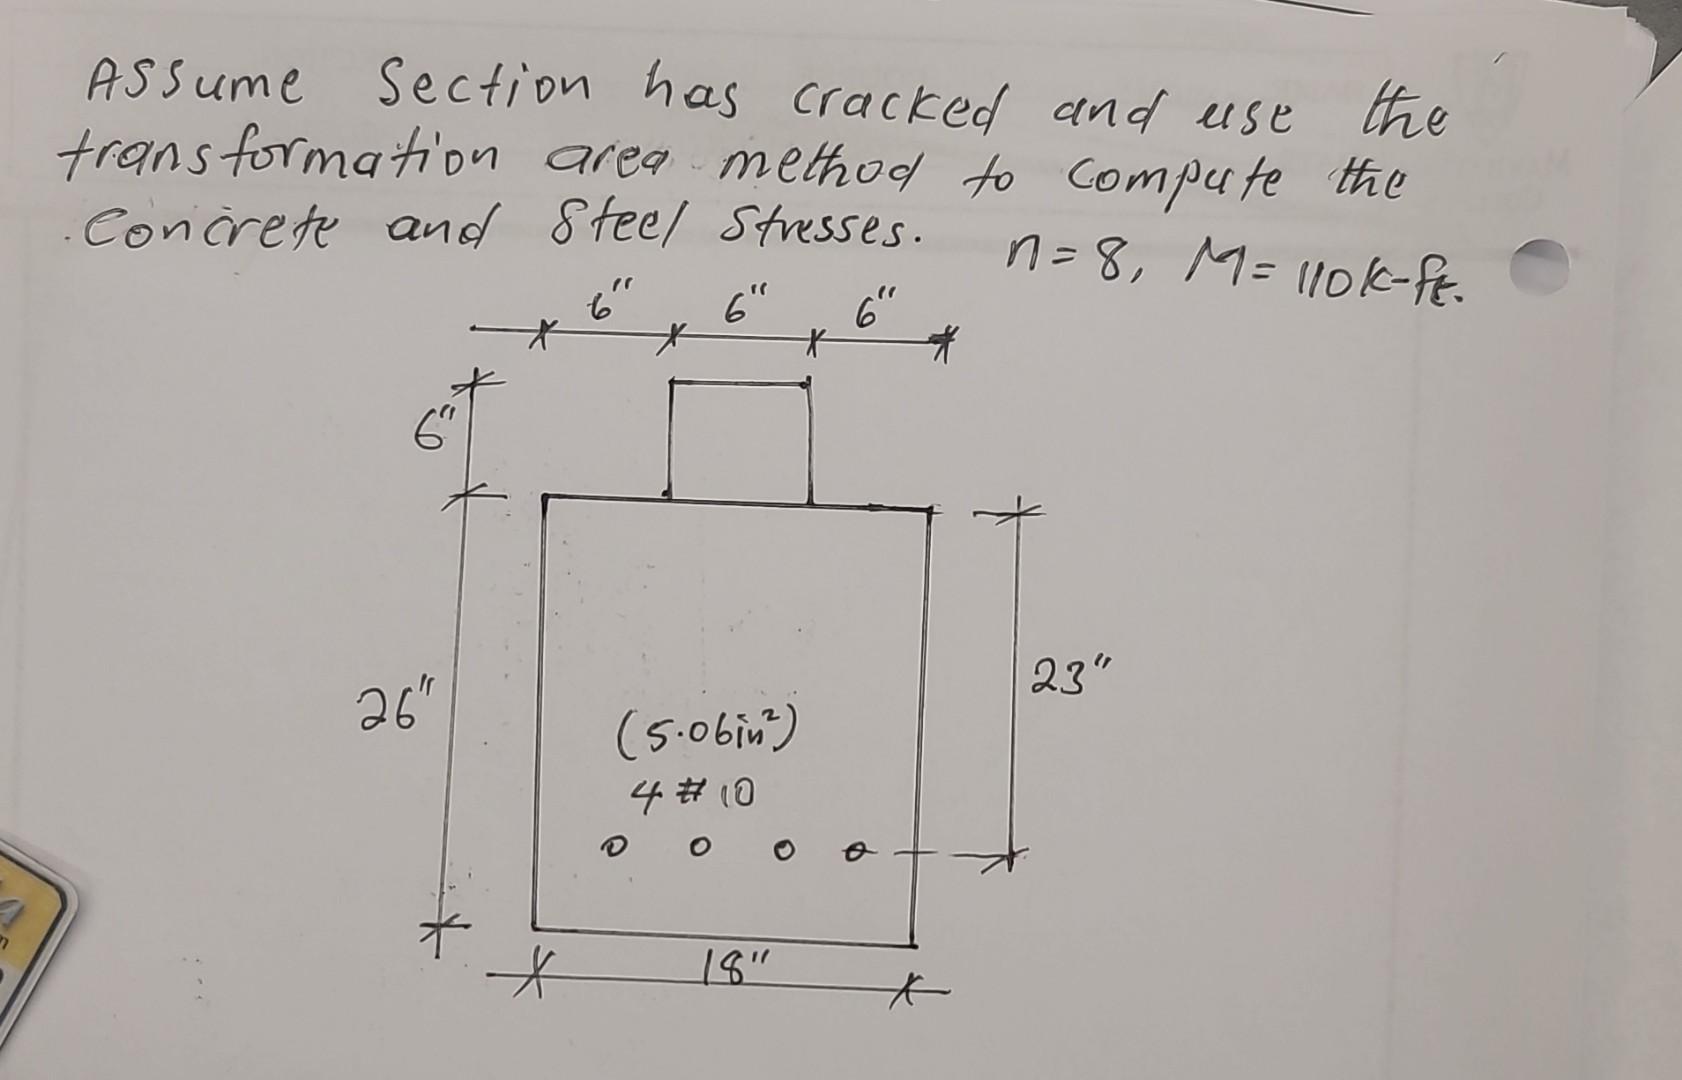 Assume Section has cracked and use the
transformation area method to compute the
Concrete and Steel Stresses. n=8, M=110k-ft.
6" 6" 6"
6"
23"
26"
(5.06in²)
4 # 10
18"